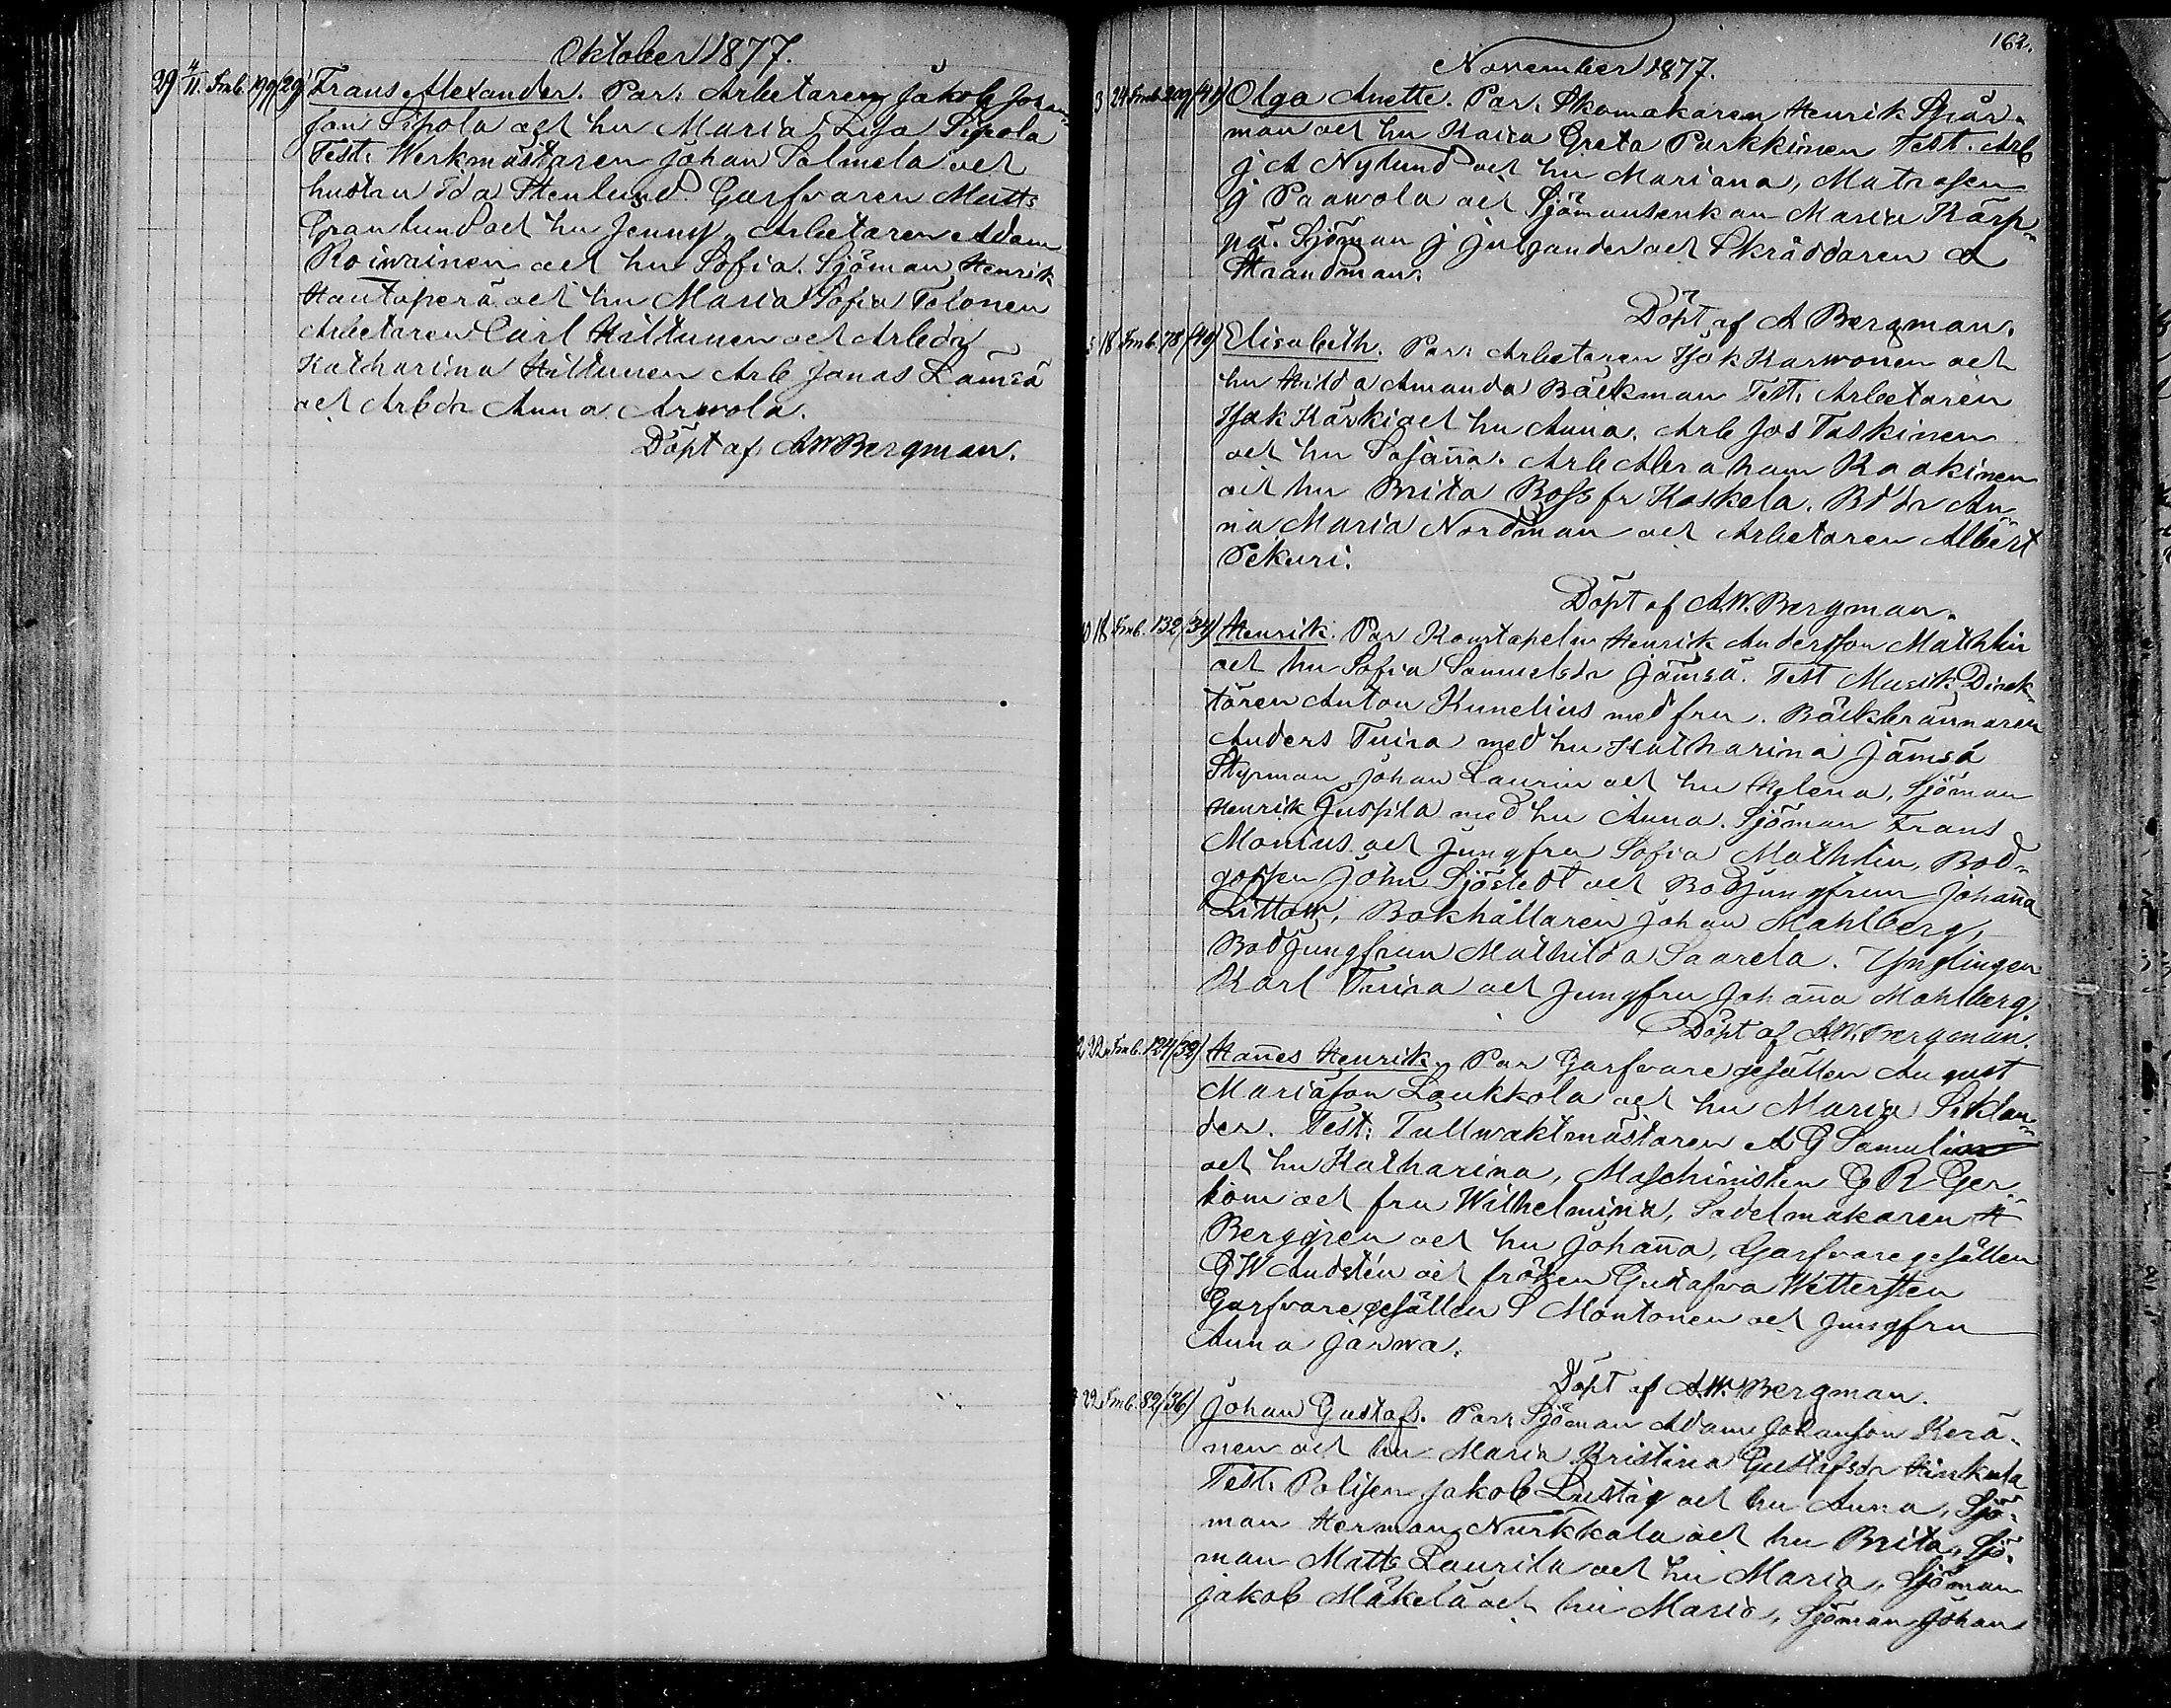 Oktober 1877.
29 4/11 Fmb. 199 (29) Frans Alexander. Par. Arbetaren Jakob Johan-
son Sipola och hu Maria Lisa Sipola
Test: Werkmästaren Johan Salmela och
hustru Ida Stenlund. Garfvaren Matts
Granlund och hu Jenny, Arbetaren Adam
Roiwainen och hu Sofia. Sjöman Henrik
Hautaperä och hu Maria Sofia Tolonen
Arbetaren Carl Hiltunen och Arbdr
Katharina Hiltunen Arb Jonas Lämsä
och Arbdr Anna Arwola.
Döpt af AWBergman.
162.
November 1877.
3 24 Fmb. 209 (41) Olga Anette. Par. Skomakaren Henrik Skär-
man och hu Kaisa Greta Parkkinen Test. Arb
J A Nylund och hu Mariana, Matrosen
J Paawola och Sjömansenkan Maria Kärp-
pä. Sjöman J Julgander och Skräddaren A
Strandman.
Döpt af A Bergman.
5 18 Fmb. 78 (49) Elisabeth. Par: Arbetaren Isak Karwonen och
hu Hilda Amanda Bäckman Test. Arbetaren
Isak Kärki och hu Anna. Arb Jos Taskinen
och hu Sofanna. Arb Abraham Raakinen
och hu Brita Boss fr Koskela. Bddr An
na Maria Nordman och Arbetaren Albert
Pekuri.
Döpt af A.W. Bergman.
10 18 Fmb. 132 (34) Henrik. Par Konstapeln Henrik Andersson Mathlin
och hu Sofia Samuelsdr Jämsä. Test Musik Direk-
tören Anton Kunelius med fru. Bäckbrännaren
Anders Tuira med hu Katharina Jämsä
Styrman Johan Laurin och hu Helena, Sjöman
Henrik Juspila med hu Anna. Sjöman Frans
Monius och Jungfru Sofia Mathlin, Bod-
gossen John Sjöstedt och Bodjungfrun Johanna
Littow, Bokhållaren Johan Mahlberg,
Bodjungfrun Mathilda Saarela. Ynglingen
Karl Tuira och Jungfru Johanna Mahlberg.
Döpt af A.W. Bergman.
22 Fmb. 124 (32) Hannes Henrik. Par Garfvaregesällen August
Mariäson Loukkola och hu Maria Siklan-
der. Test: Tullwaktmästaren A G Samulin
och hu Katharina, Maschinisten G R Ger-
kom och fru Wilhelmina, Sadelmakaren H
Berggren och hu Johanna, Garfvaregesällen
G W Audstén och fröken Gustafva Wettersten
Garfvaregesällen S Montonen och Jungfru
Anna Jarwa.
Döpt af A.W. Bergman.
22 Fmb. 82 (36) Johan Gustaf. Par: Sjöman Adam Johanson Kerä-
nen och hu Maria Kristina Gustafsdr Hinkula
Test. Polisen Jakob Lustig och hu Anna, Sjö-
man Herman Nurkkala och hu Brita, Sjö-
man Matts Laurila och hu Maria, Sjöman
Jakob Mäkelä och hu Maria, Sjöman Johan